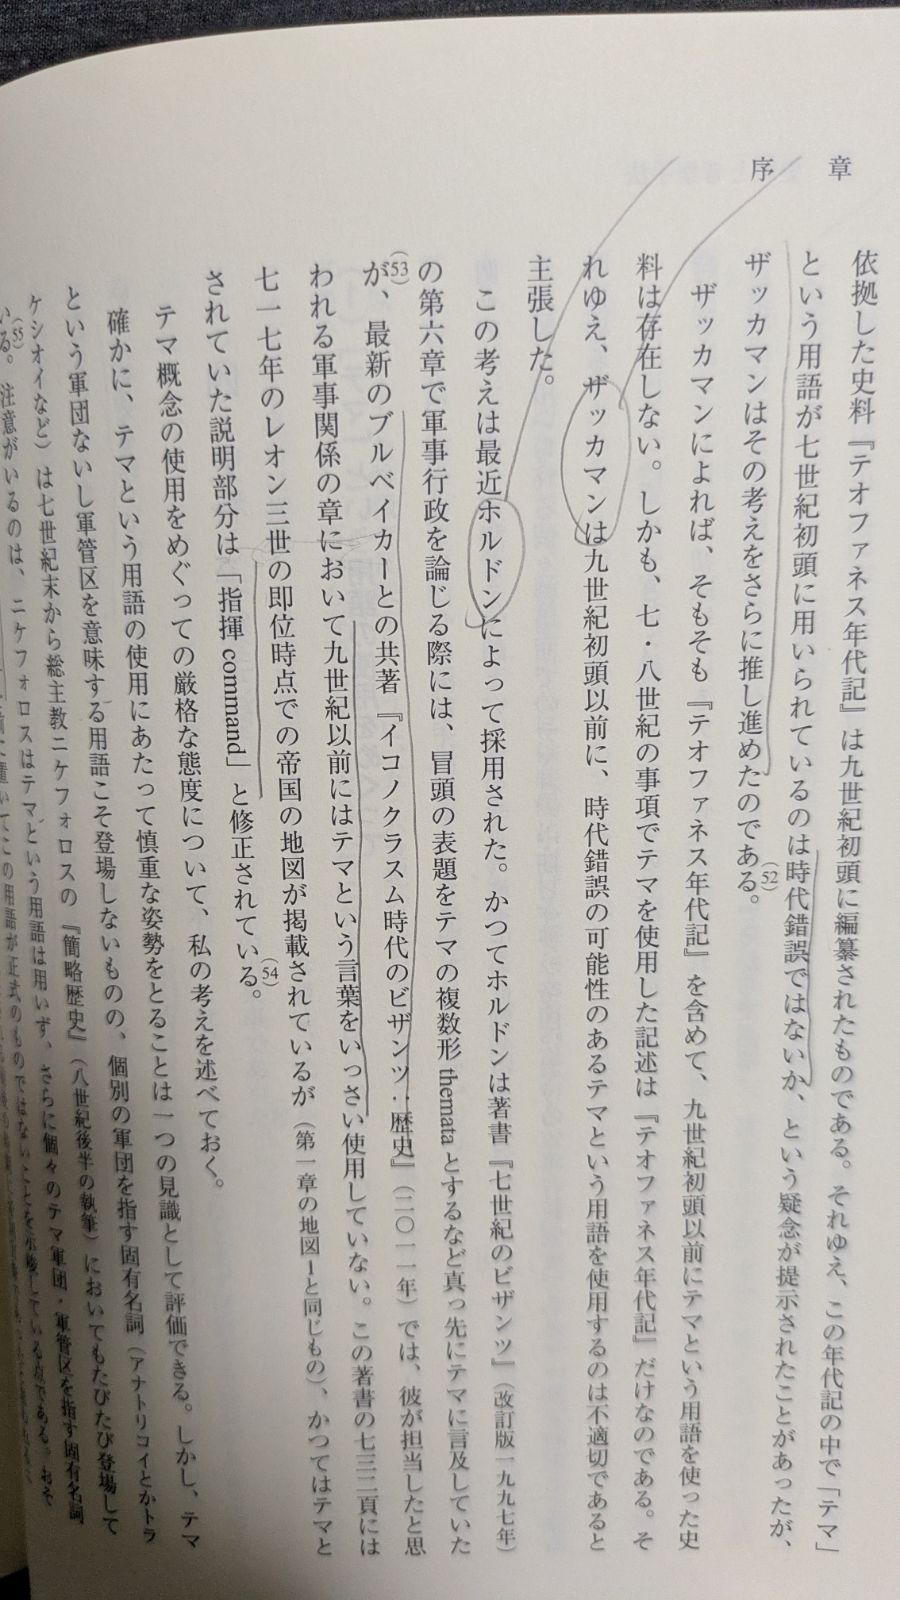 序章
依拠した史料『テオファネス年代記』は九世紀初頭に編纂されたものである。それゆえ、この年代記の中で「テマ」
という用語が七世紀初頭に用いられているのは時代錯誤ではないか、という疑念が提示されたことがあったが、
ザッカマンはその考えをさらに推し進めたのである。(52)
ザッカマンによれば、そもそも『テオファネス年代記』を含めて、九世紀初頭以前にテマという用語を使った史
料は存在しない。しかも、七・八世紀の事項でテマを使用した記述は『テオファネス年代記』だけなのである。そ
れゆえ、ザッカマンは九世紀初頭以前に、時代錯誤の可能性のあるテマという用語を使用するのは不適切であると
主張した。
この考えは最近ホルドンによって採用された。かつてホルドンは著書『七世紀のビザンツ』（改訂版一九九七年）
の第六章で軍事行政を論じる際には、冒頭の表題をテマの複数形 themata とするなど真っ先にテマに言及していた
が、(53)最新のブルベイカーとの共著『イコノクラスム時代のビザンツ：歴史』（二〇一一年）では、彼が担当したと思
われる軍事関係の章において九世紀以前にはテマという言葉をいっさい使用していない。この著書の七三二頁には
七一七年のレオン三世の即位時点での帝国の地図が掲載されているが（第一章の地図1と同じもの）、かつてはテマと
されていた説明部分は「指揮 command」と修正されている。(54)
テマ概念の使用をめぐっての厳格な態度について、私の考えを述べておく。
確かに、テマという用語の使用にあたって慎重な姿勢をとることは一つの見識として評価できる。しかし、テマ
という軍団ないし軍管区を意味する用語こそ登場しないものの、個別の軍団を指す固有名詞（アナトリコイとかトラ
ケシオイなど）は七世紀末から総主教ニケフォロスの『簡略歴史』（八世紀後半の執筆）においてもたびたび登場して
いる。(55)注意がいるのは、ニケフォロスはテマという用語は用いず、さらに個々のテマ軍団・軍管区を指す固有名詞